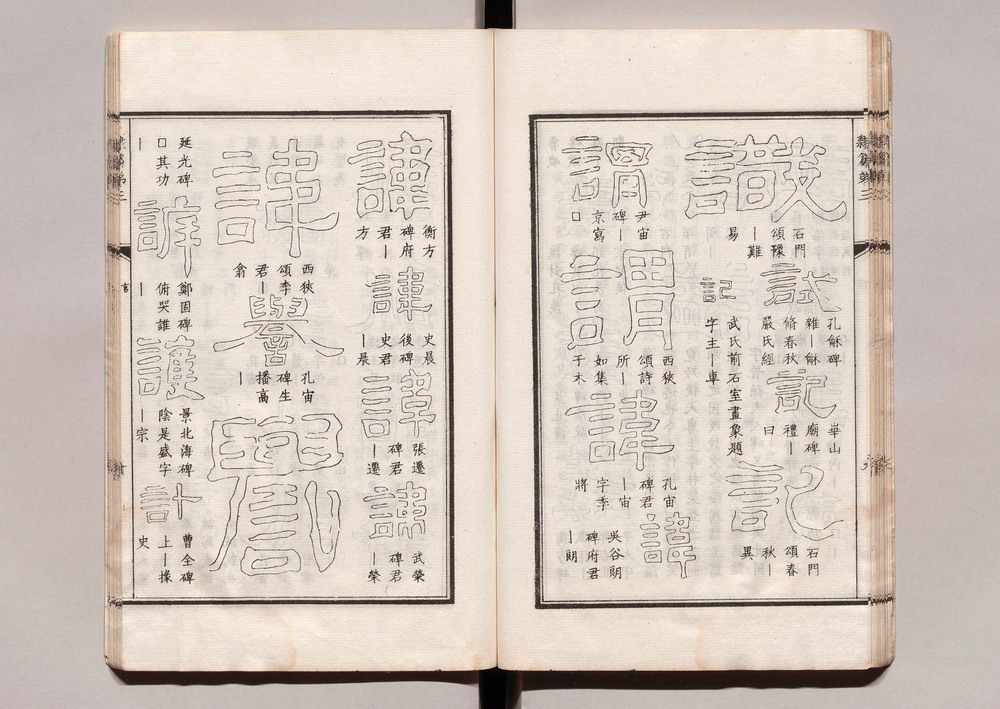 隸篇第三
識
石門
頌豫
｜難
易
試
孔龢碑
雜｜龢
脩春秋
嚴氏經
記
華山
廟碑
禮｜
曰
記
石門
頌春
秋｜
異
記
武氏前石室畫象題
字主｜車
謂
尹宙
碑｜
京寫
□
謂
西狹
頌詩
所｜
如集
于木
諱
孔宙
碑君
｜宙
字季
將
諱
吳谷朗
碑府君
｜朗
諱
衡方
碑府
君｜
方
諱
史晨
後碑
史君
｜晨
諱
張遷
碑君
｜遷
諱
武榮
碑君
｜榮
諱
西狹
頌李
君｜
翕
譽
孔宙
碑生
播高
｜
譽
延光碑
□其功
｜
訴
鄭固碑
俯哭誰
｜
護
景北海碑
陰是盛字
｜宗
計
曹全碑
上｜掾
史
言